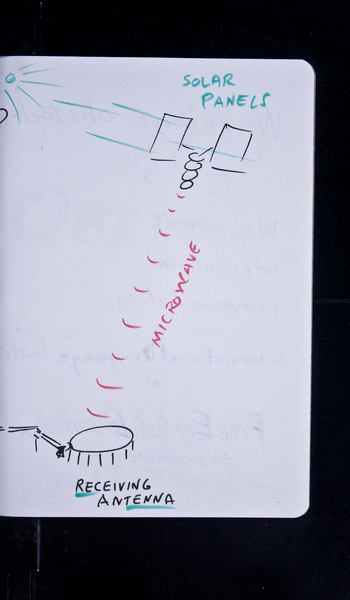 SOLAR
PANELS
MICROWAVE
RECEIVING
ANTENNA